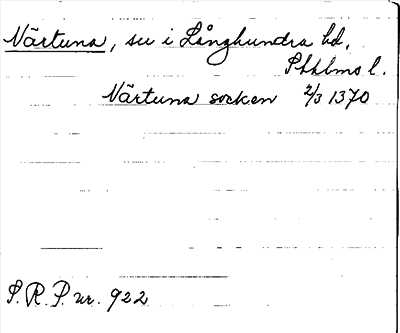 Närtuna, sn i Långhundra hd,
Sthlms l.
Närtuna socken 2/3 1370
S.R.P. nr. 922